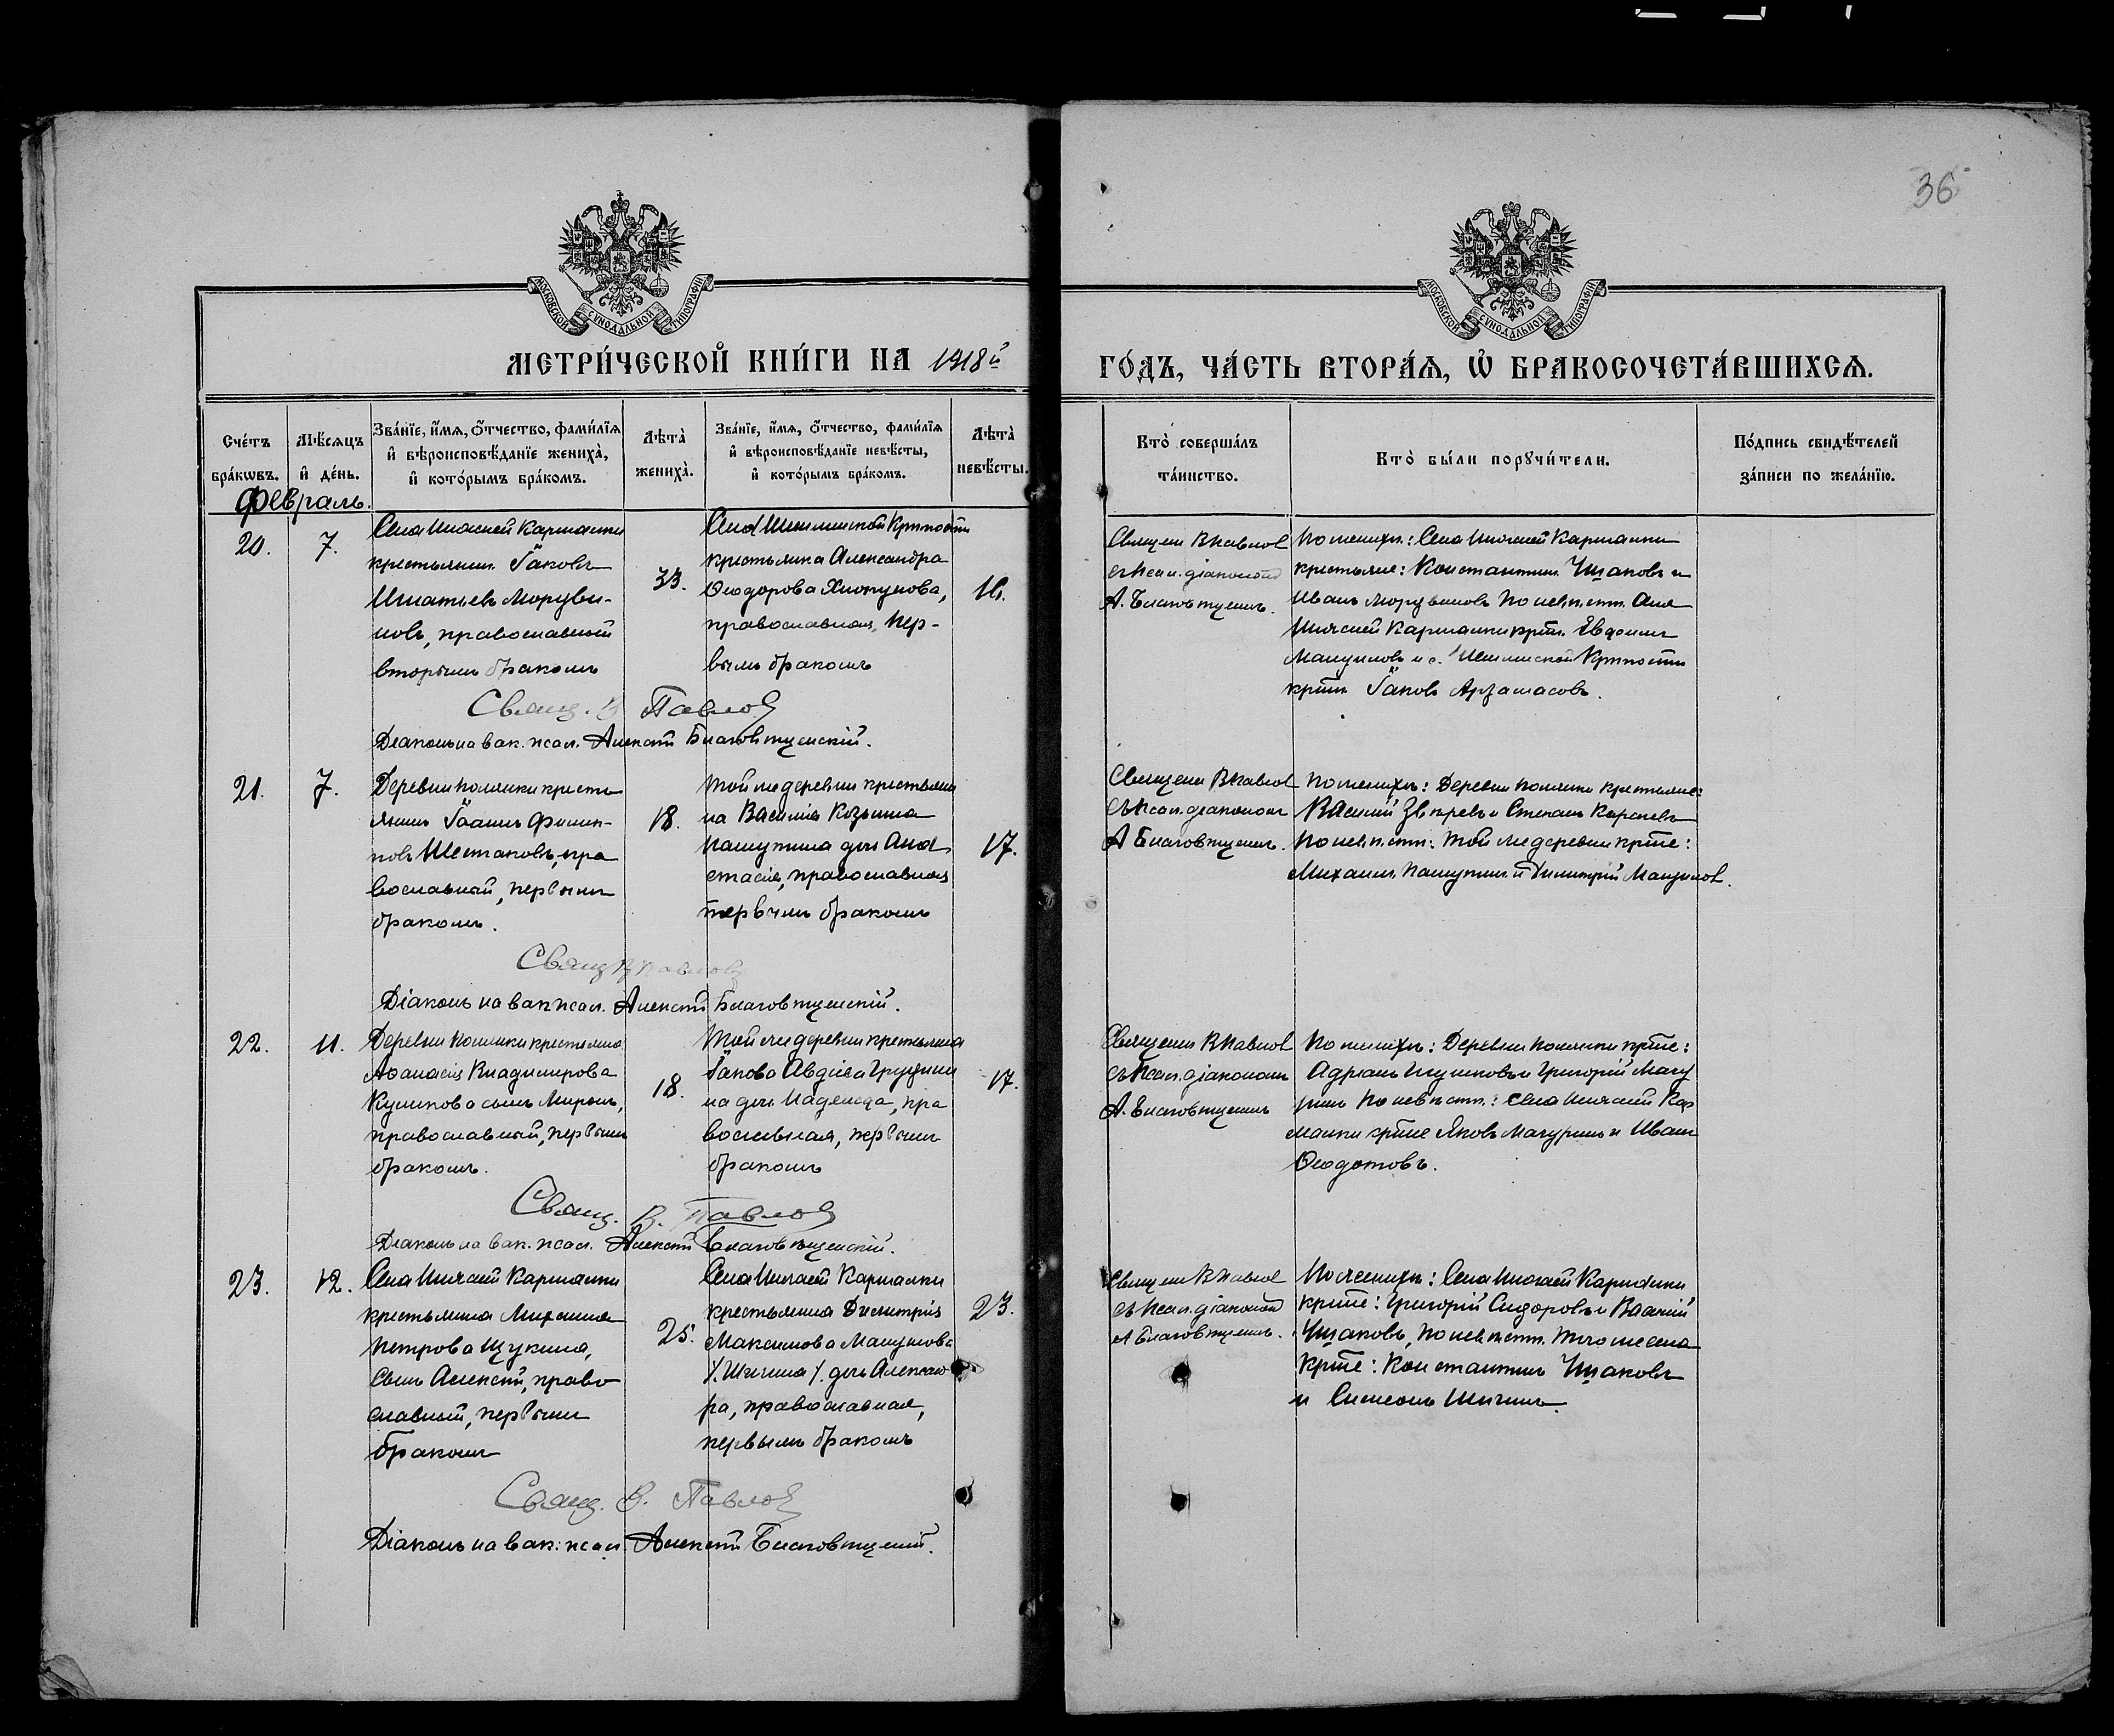 36
МОСКОВСКОЙ СѴНОДАЛЬНОЙ ТИПОГРАФІИ
МОСКОВСКОЙ СѴНОДАЛЬНОЙ ТИПОГРАФІИ
МЕТРИ́ЧЕСКОЙ КНИ́ГИ НА 1918й
ГО́ДЪ, ЧА́СТЬ ВТОРА́Ѧ, Ѡ҆ БРАКОСОЧЕТА́ВШИХСѦ.
Сче́тъ бра́кѡвъ.
Мѣ́сѧцъ и҆ де́нь.
Зва́нїе, и҆́мѧ, ѻ҆́тчество, фами́лїѧ
и҆ вѣроисповѣ́данїе жениха̀,
и҆ кото́рымъ бра́комъ.
Лѣта̀ жениха̀.
Зва́нїе, и҆́мѧ, ѻ҆́тчество, фами́лїѧ
и҆ вѣроисповѣ́данїе невѣ́сты,
и҆ кото́рымъ бра́комъ.
Лѣта̀ невѣ́сты.
Кто̀ соверша́лъ та́инство.
Кто̀ бы́ли порꙋчи́тели.
По́дпись свидѣ́телей за́писи по жела́нїю.
Февраль.
20.
7.
Села Нижней Кармалки
крестьянинъ Іаковъ
Игнатьевъ Морузи-
новъ, православный
вторымъ бракомъ
33.
Села Шешминской Крѣпости
крестьянина Александра
Ѳеодорова Хлопунова,
православная, пер-
вымъ бракомъ
16.
Священ В Павлов
съ псал. діакономъ
А. Благовѣщенъ.
По женихѣ: Села Нижней Кармалки
крестьяне: Константинъ Ушаковъ и
Иванъ Морузиновъ По невѣстѣ. Села
Нижней Кармалки крѣ. Евдокимъ
Мащиловъ и с. Шешминской Крѣпости
крѣ Іаковъ Арзамасовъ.
Свящ. В Павлов
Діаконъ на вак. псал. Алексѣй Благовѣщенскій.
21.
7.
Деревни Полянки кресть
янинъ Іоаннъ Филип-
повъ Шестаковъ, пра
вославный, первымъ
бракомъ.
18.
Той же деревни крестьяни
на Василія Козьмина
Пашутина дочь Ана
стасія, православная
первымъ бракомъ
17.
Священ В Павлов
съ псал. діакономъ
А Благовѣщенъ.
По женихѣ: Деревни Полянки крестьяне:
Василій Звѣревъ и Степанъ Каргаевъ
По невѣстѣ: Той же деревни крѣе:
Михаилъ Пашутинъ и Димитрій Мащилов.
Свящ В Павловъ
Діаконъ на вак псал. Алексѣй Благовѣщенскій.
22.
11.
Деревни Полянки крестьянина
Аѳанасія Владимирова
Куликова сынъ Миронъ,
православный, первымъ
бракомъ.
18.
Той же деревни крестьянина
Іакова Авдіева Грузини
на дочь Надежда, пра
вославная, первымъ
бракомъ
17.
Священ В Павлов
съ псал. діакономъ
А. Благовѣщенъ
По женихѣ: Деревни Полянки крѣе:
Адріанъ и Григорій Мачу
ринъ По невѣстѣ: Села Нижней Кар
малки крѣе Яковъ Мачуринъ и Иванъ
Ѳеодотовъ.
Свящ. В. Павлов
Діаконъ на вак. псал. Алексѣй Благовѣщенскій.
23.
12.
Села Нижней Кармалки
крестьянина Михаила
Петрова Щукина,
сынъ Алексѣй, право
славный, первымъ
бракомъ
25.
Села Нижней Кармалки
крестьянина Димитрія
Максимова Мащилова
/. Шигина /. дочь Александ
ра, православная,
первымъ бракомъ
23.
Священ В Павлов
съ псал. діакономъ
А Благовѣщенъ.
По женихѣ: Села Нижней Кармалки
крѣе: Григорій Сидоровъ и Василій
Ушаковъ, по невѣстѣ. того же села
крѣе: Константинъ Ушаковъ
и Симеонъ Шигинъ.
Свящ. В. Павлов
Діаконъ на вак. псал. Алексѣй Благовѣщенскій.